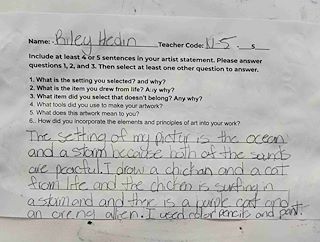 Name: Riley Hedin Teacher Code: N5. 5
Include at least 4 or 5 sentences in your artist statement. Please answer
questions 1, 2, and 3. Then select at least one other question to answer.
1. What is the setting you selected? and why?
2. What is the item you drew from life? Any why?
3. What item did you select that doesn't belong? Any why?
4. What tools did you use to make your artwork?
5. What does this artwork mean to you?
6. How did you incorporate the elements and principles of art into your work?
The setting of my pictur is the ocean
and a storm because both of the sounds
are peacful. I drow a chichan and a cat
from life and the chichen is surfing in
a storm and and ther is a purple cat and
an orenel alien. I used color pencils and pant.